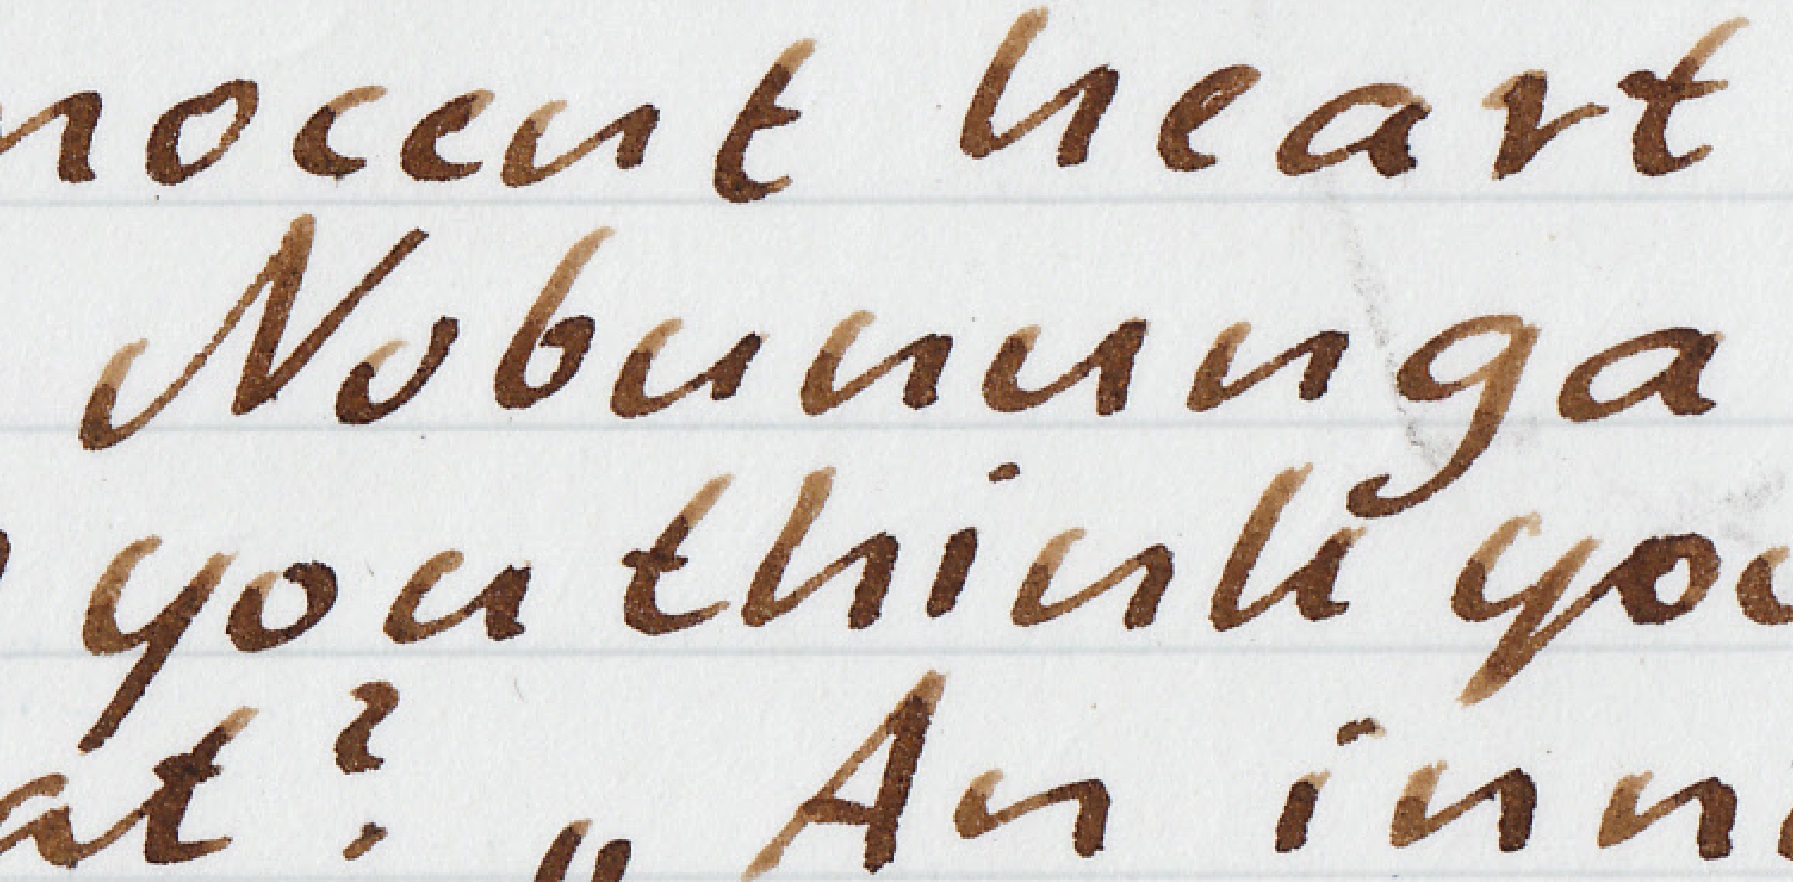 nocent heart
Nobununga
you think you
at? „An inn